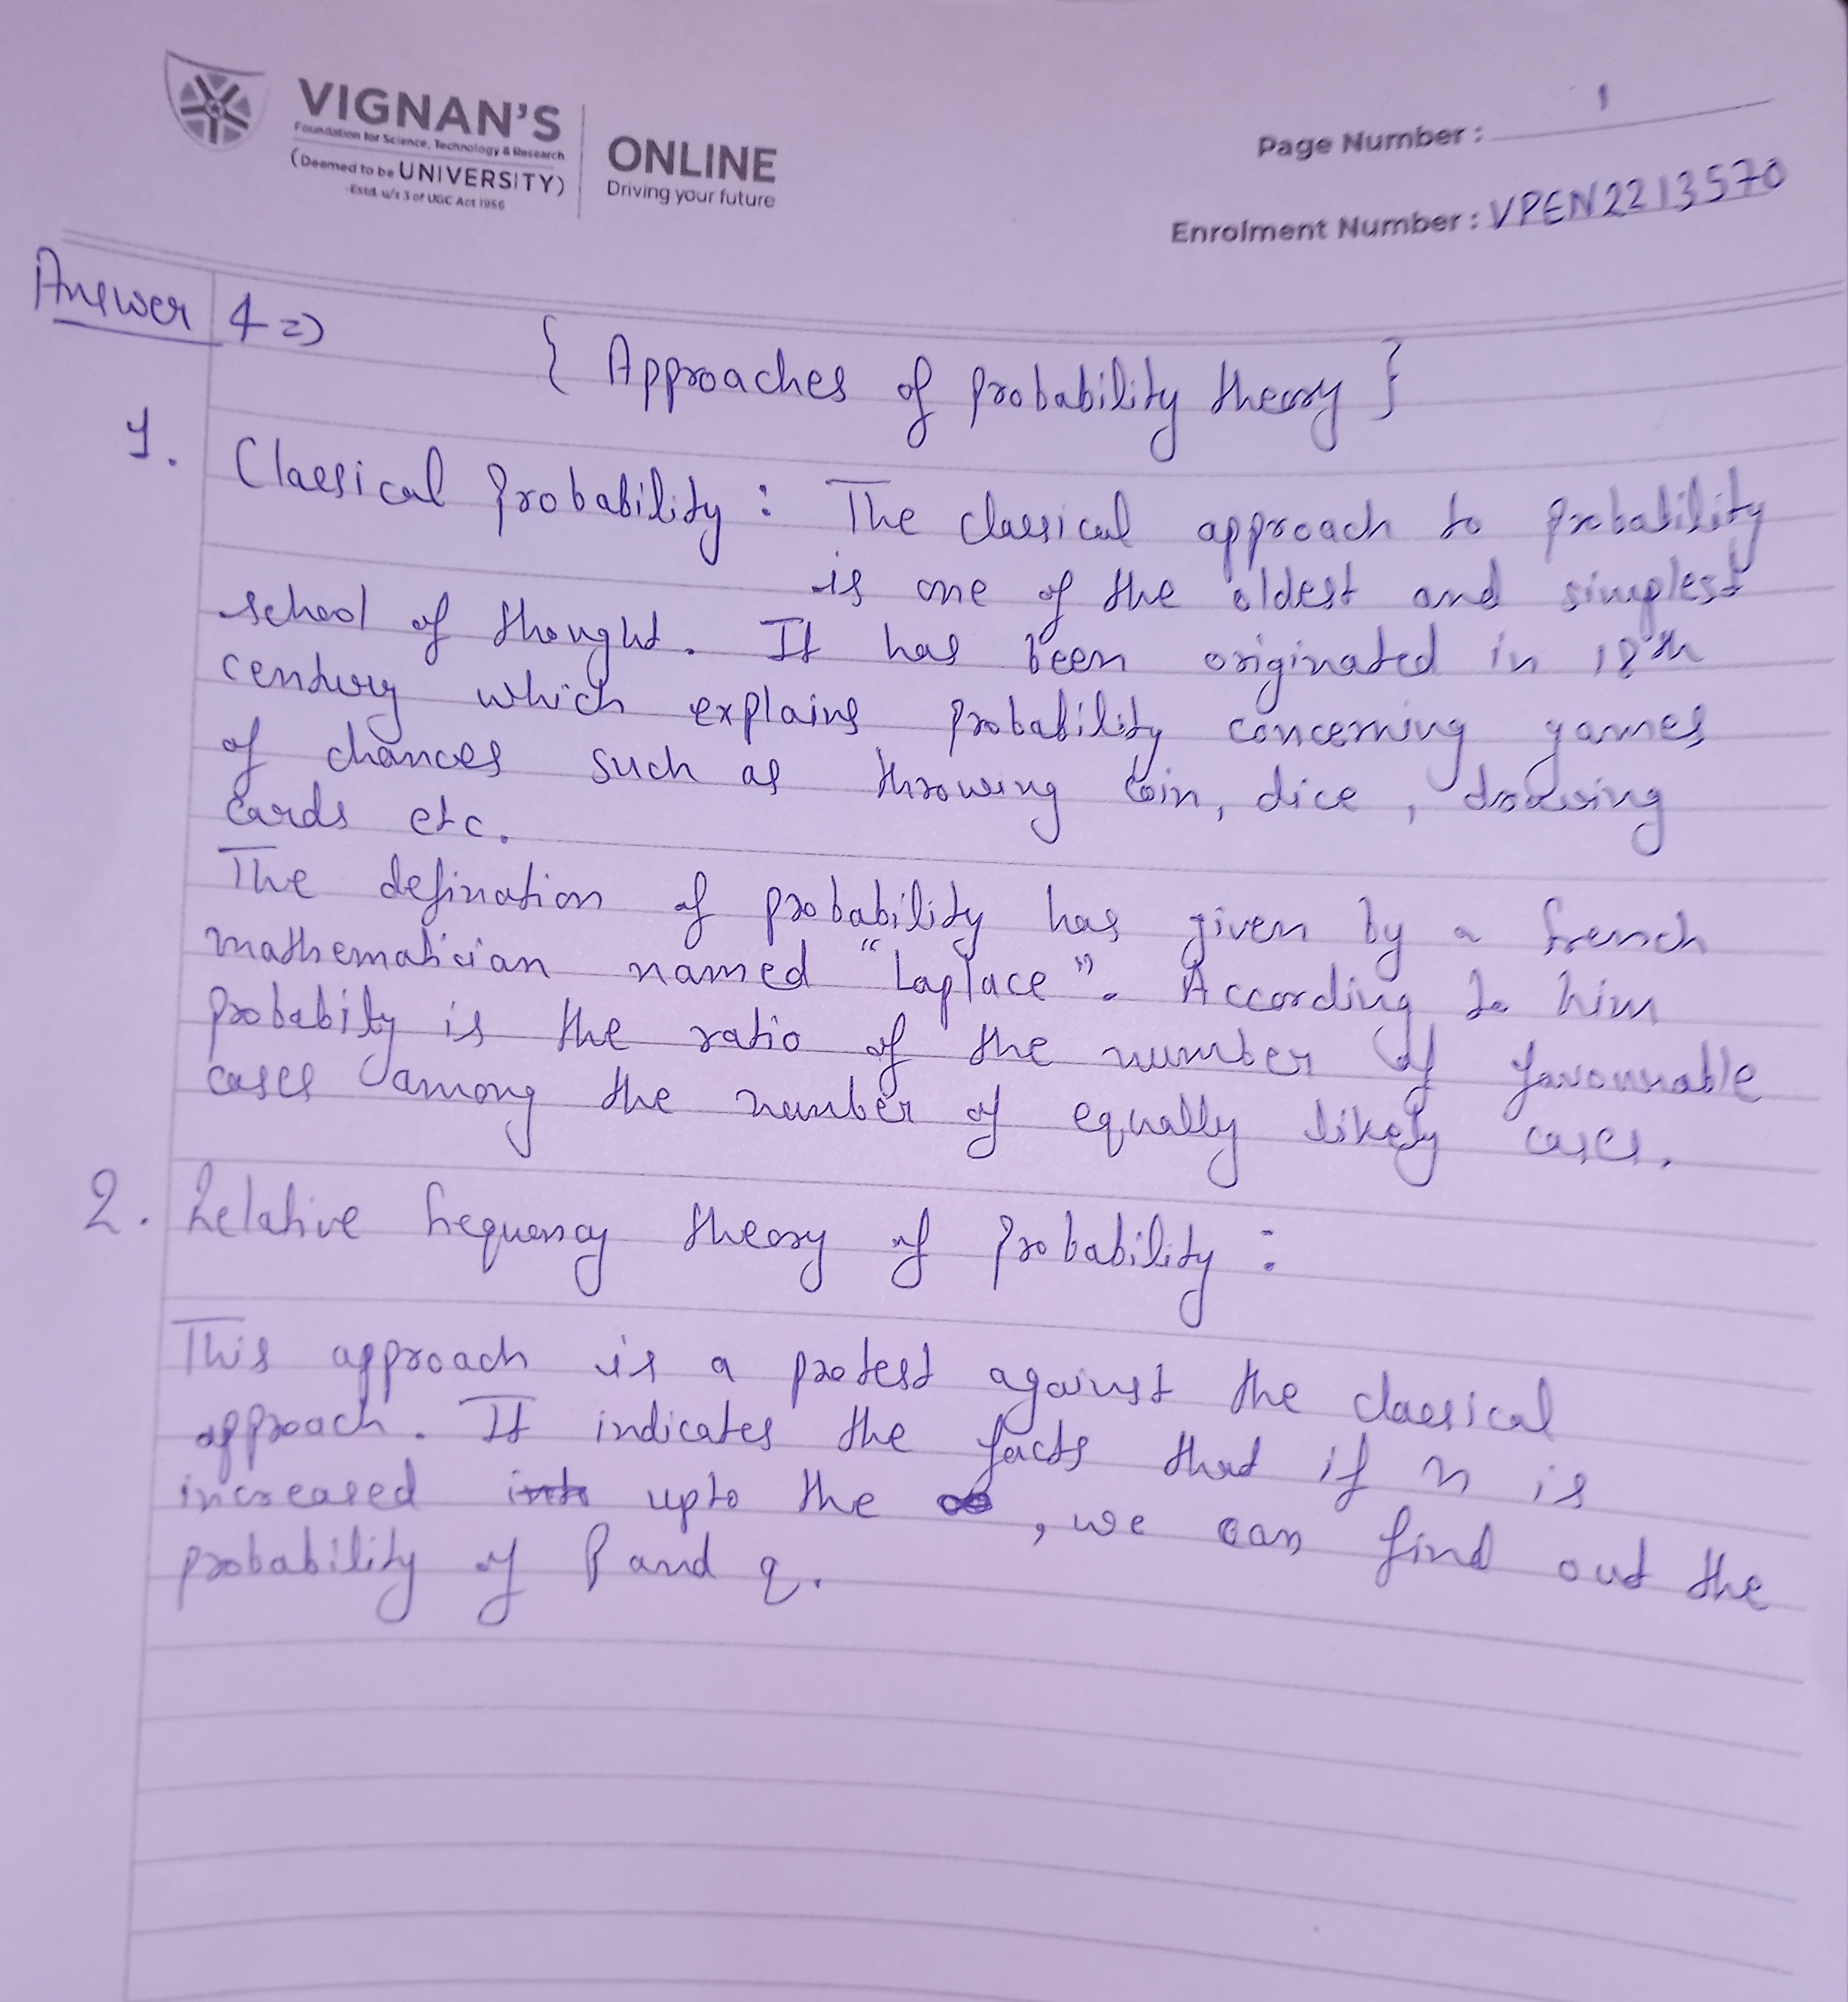 VIGNAN'S
Foundation for Science, Technology & Research
(Deemed to be UNIVERSITY)
-Estd. u/s 3 of UGC Act 1956
ONLINE
Driving your future
Page Number : 1
Enrolment Number : VPEN2213570
Answer 4 =>
{ Approaches of probability theory }
1. Classical Probability : The classical approach to probability
is one of the oldest and simplest
school of thought. It has been originated in 18th
century which explains probability concerning games
of chances such as throwing coin, dice, drawing
cards etc.
The defination of probability has given by a french
mathematician named "Laplace". According to him
probabity is the ratio of the number of favourable
cases among the number of equally likely cases.
2. Relative frequency theory of Probability :
This approach is a protest against the classical
approach. It indicates the facts that if n is
increased into upto the ∞, we can find out the
probability of P and q.